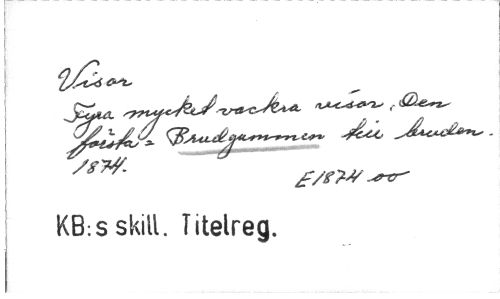 Visor
Fyra mycket vackra visor. Den
första = Brudgummen till bruden.
1874.
E1874 oo
KB:s skill. Titelreg.